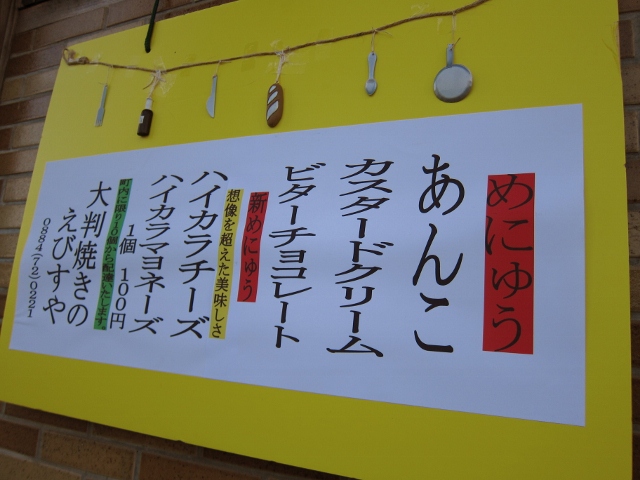 めにゅう
あんこ
カスタードクリーム
ビターチョコレート
新めにゅう
想像を超えた美味しさ
ハイカラチーズ
ハイカラマヨネーズ
1個 100円
町内に限り10個から配達いたします。
大判焼きの
えびすや
0884(72)0221